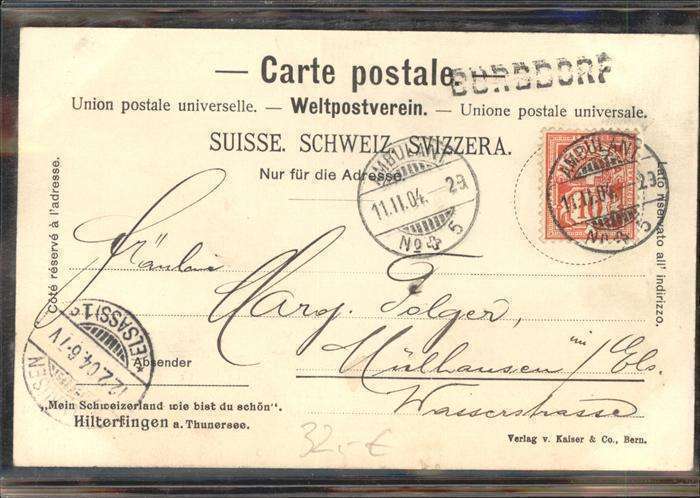 — Carte postale —
BURGDORF
Union postale universelle. — Weltpostverein. — Unione postale universale.
SUISSE. SCHWEIZ. SVIZZERA.
Nur für die Adresse.
AMBULANT
11.II.04. — 29
No 5
AMBULANT
11.II.04. — 29
No 5
10
Côté réservé à l'adresse.
Lato riservato all' indirizzo.
Fräulein
Marg. Folger,
Mülhausen im / Els.
Wasserstrasse
(ELSASS) 1
12.2.04. 6-7 V
Absender
„Mein Schweizerland wie bist du schön“.
Hilterfingen a. Thunersee.
32,- €
Verlag v. Kaiser & Co., Bern.